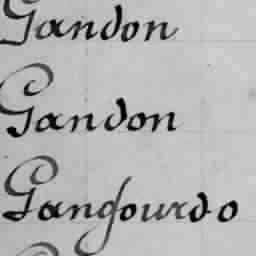 Gandon
Gandon
Gangourdo